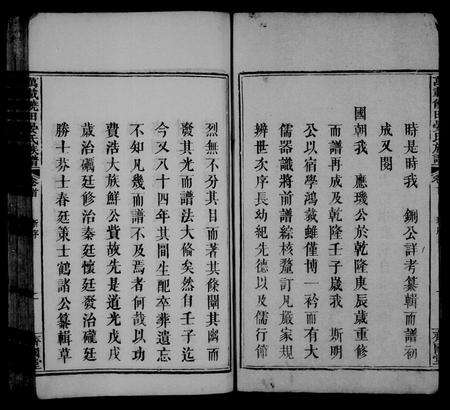 時是時我 錒公詳考纂輯而譜初
成又閱
國朝我 應璣公於乾隆庚辰歲重修
而譜再成及乾隆壬子歲我 斯明
公以宿學鴻裁雖僅博一衿而有大
儒器識將前譜綜核釐訂凡嚴家規
辨世次序長幼紀先德以及儒行節
烈無不分其目而著其條闡其幽而
發其光而譜法大備矣然自壬子迄
今又八十四年其間生配卒葬遺忘
不知凡幾而譜不及焉者何哉以功
費浩大族鮮公貲故先是道光戊戌
歲治礪廷修治秦廷懷廷賡治瓏廷
勝十芬士春廷策士鶴諸公纂輯草
萬載
田
氏族譜
卷首